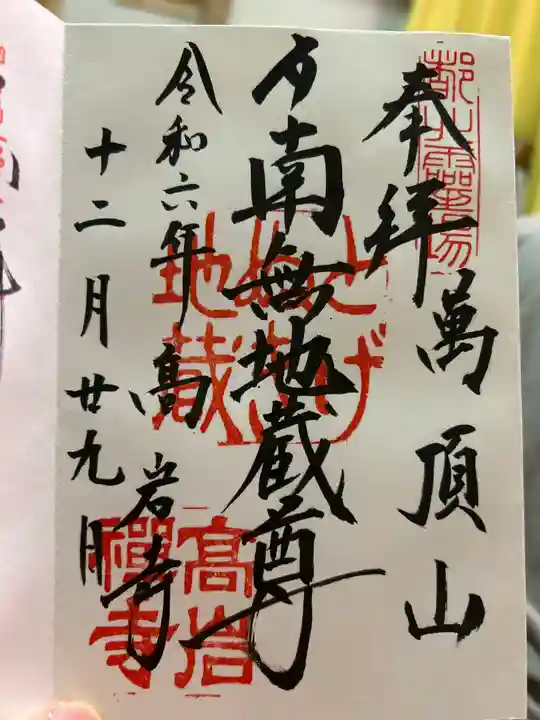 奉拝
萬頂山
南無地蔵尊
令和六年
十二月廿九日
高岩寺
とげ
ぬき
地蔵
高岩
禪寺